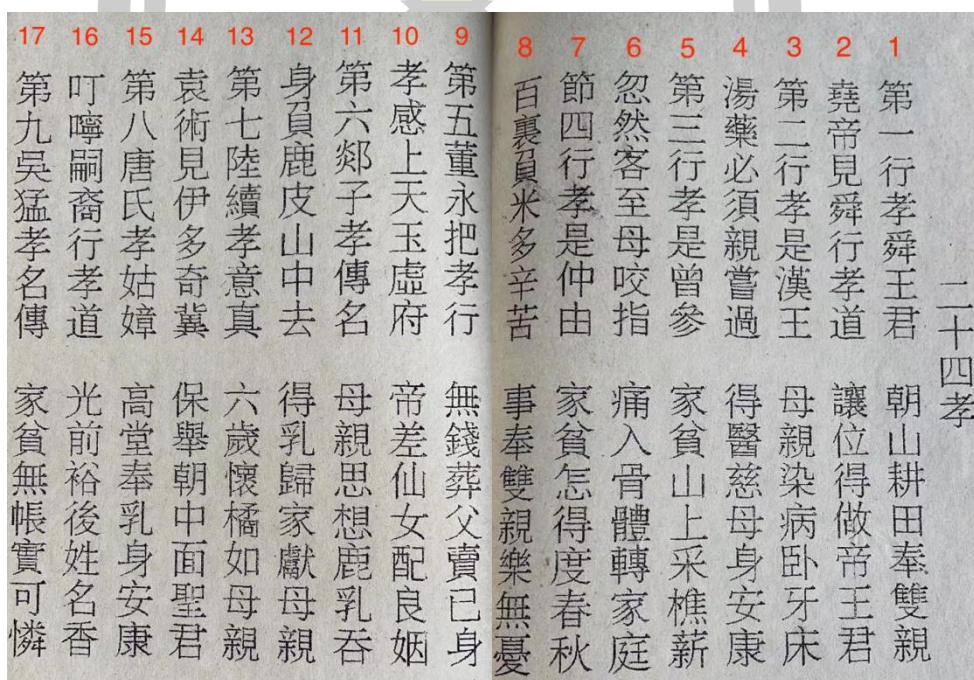 二十四孝
1 第一行孝舜王君 朝山耕田奉雙親
2 堯帝見舜行孝道 讓位得做帝王君
3 第二行孝是漢王 母親染病卧牙床
4 湯藥必須親嘗過 得醫慈母身安康
5 第三行孝是曾參 家貧山上采樵薪
6 忽然客至母咬指 痛入骨體轉家庭
7 節四行孝是仲由 家貧怎得度春秋
8 百裏負米多辛苦 事奉雙親樂無憂
9 第五董永把孝行 無錢葬父賣已身
10 孝感上天玉虛府 帝差仙女配良姻
11 第六郯子孝傳名 母親思想鹿乳吞
12 身負鹿皮山中去 得乳歸家獻母親
13 第七陸續孝意真 六歲懷橘如母親
14 袁術見伊多奇冀 保舉朝中面聖君
15 第八唐氏孝姑嫜 高堂奉乳身安康
16 叮嚀嗣裔行孝道 光前裕後姓名香
17 第九吳猛孝名傳 家貧無帳實可憐